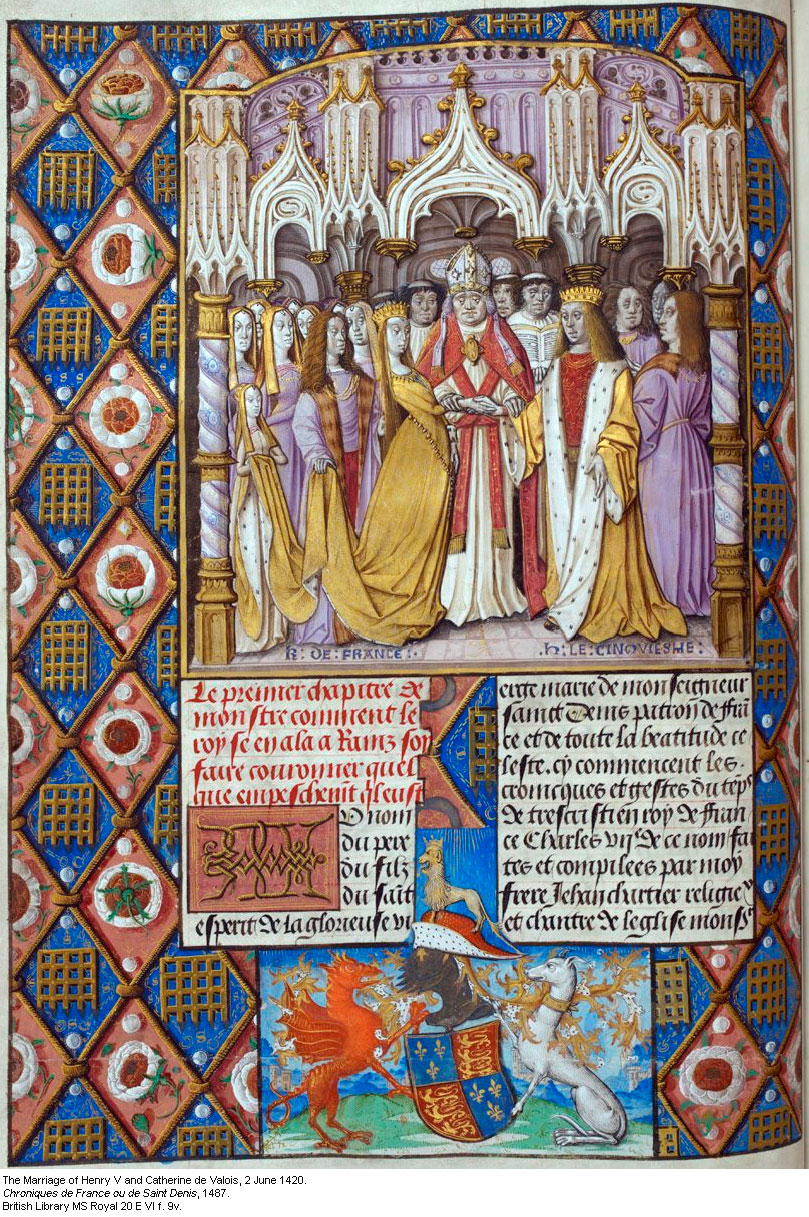 K: DE: FRANCE:
h: LE: CINQVIESHE:
Le premier chapitre de
monstre comment le
roy se en ala a Rainz soy
faire couronner quel
que empeschemt qleust
U nom
du pere
du filz
du sait
esperit de la glorieuse vi
erge marie de monseigneur
sainct Denis patron de fra
ce et de toute la beatitude ce
leste. cy commencent les
cronicques et gestes du teps
de trescrestien roy de fran
ce Charles vii.e de ce nom fai
tes et compilees par moy
frere Jehan chartier religie
et chantre de leglise monsr
The Marriage of Henry V and Catherine de Valois, 2 June 1420.
Chroniques de France ou de Saint Denis, 1487.
British Library MS Royal 20 E VI f. 9v.